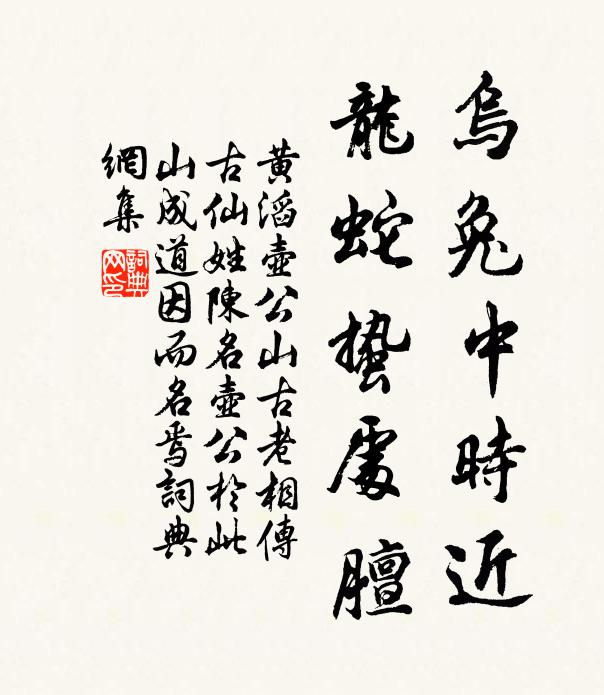 烏兔中時近
龍蛇蟄處膻
黃滔壺公山古老相傳
古仙姓陳名壺公於此
山成道因而名焉詞典
網集
詞典網印